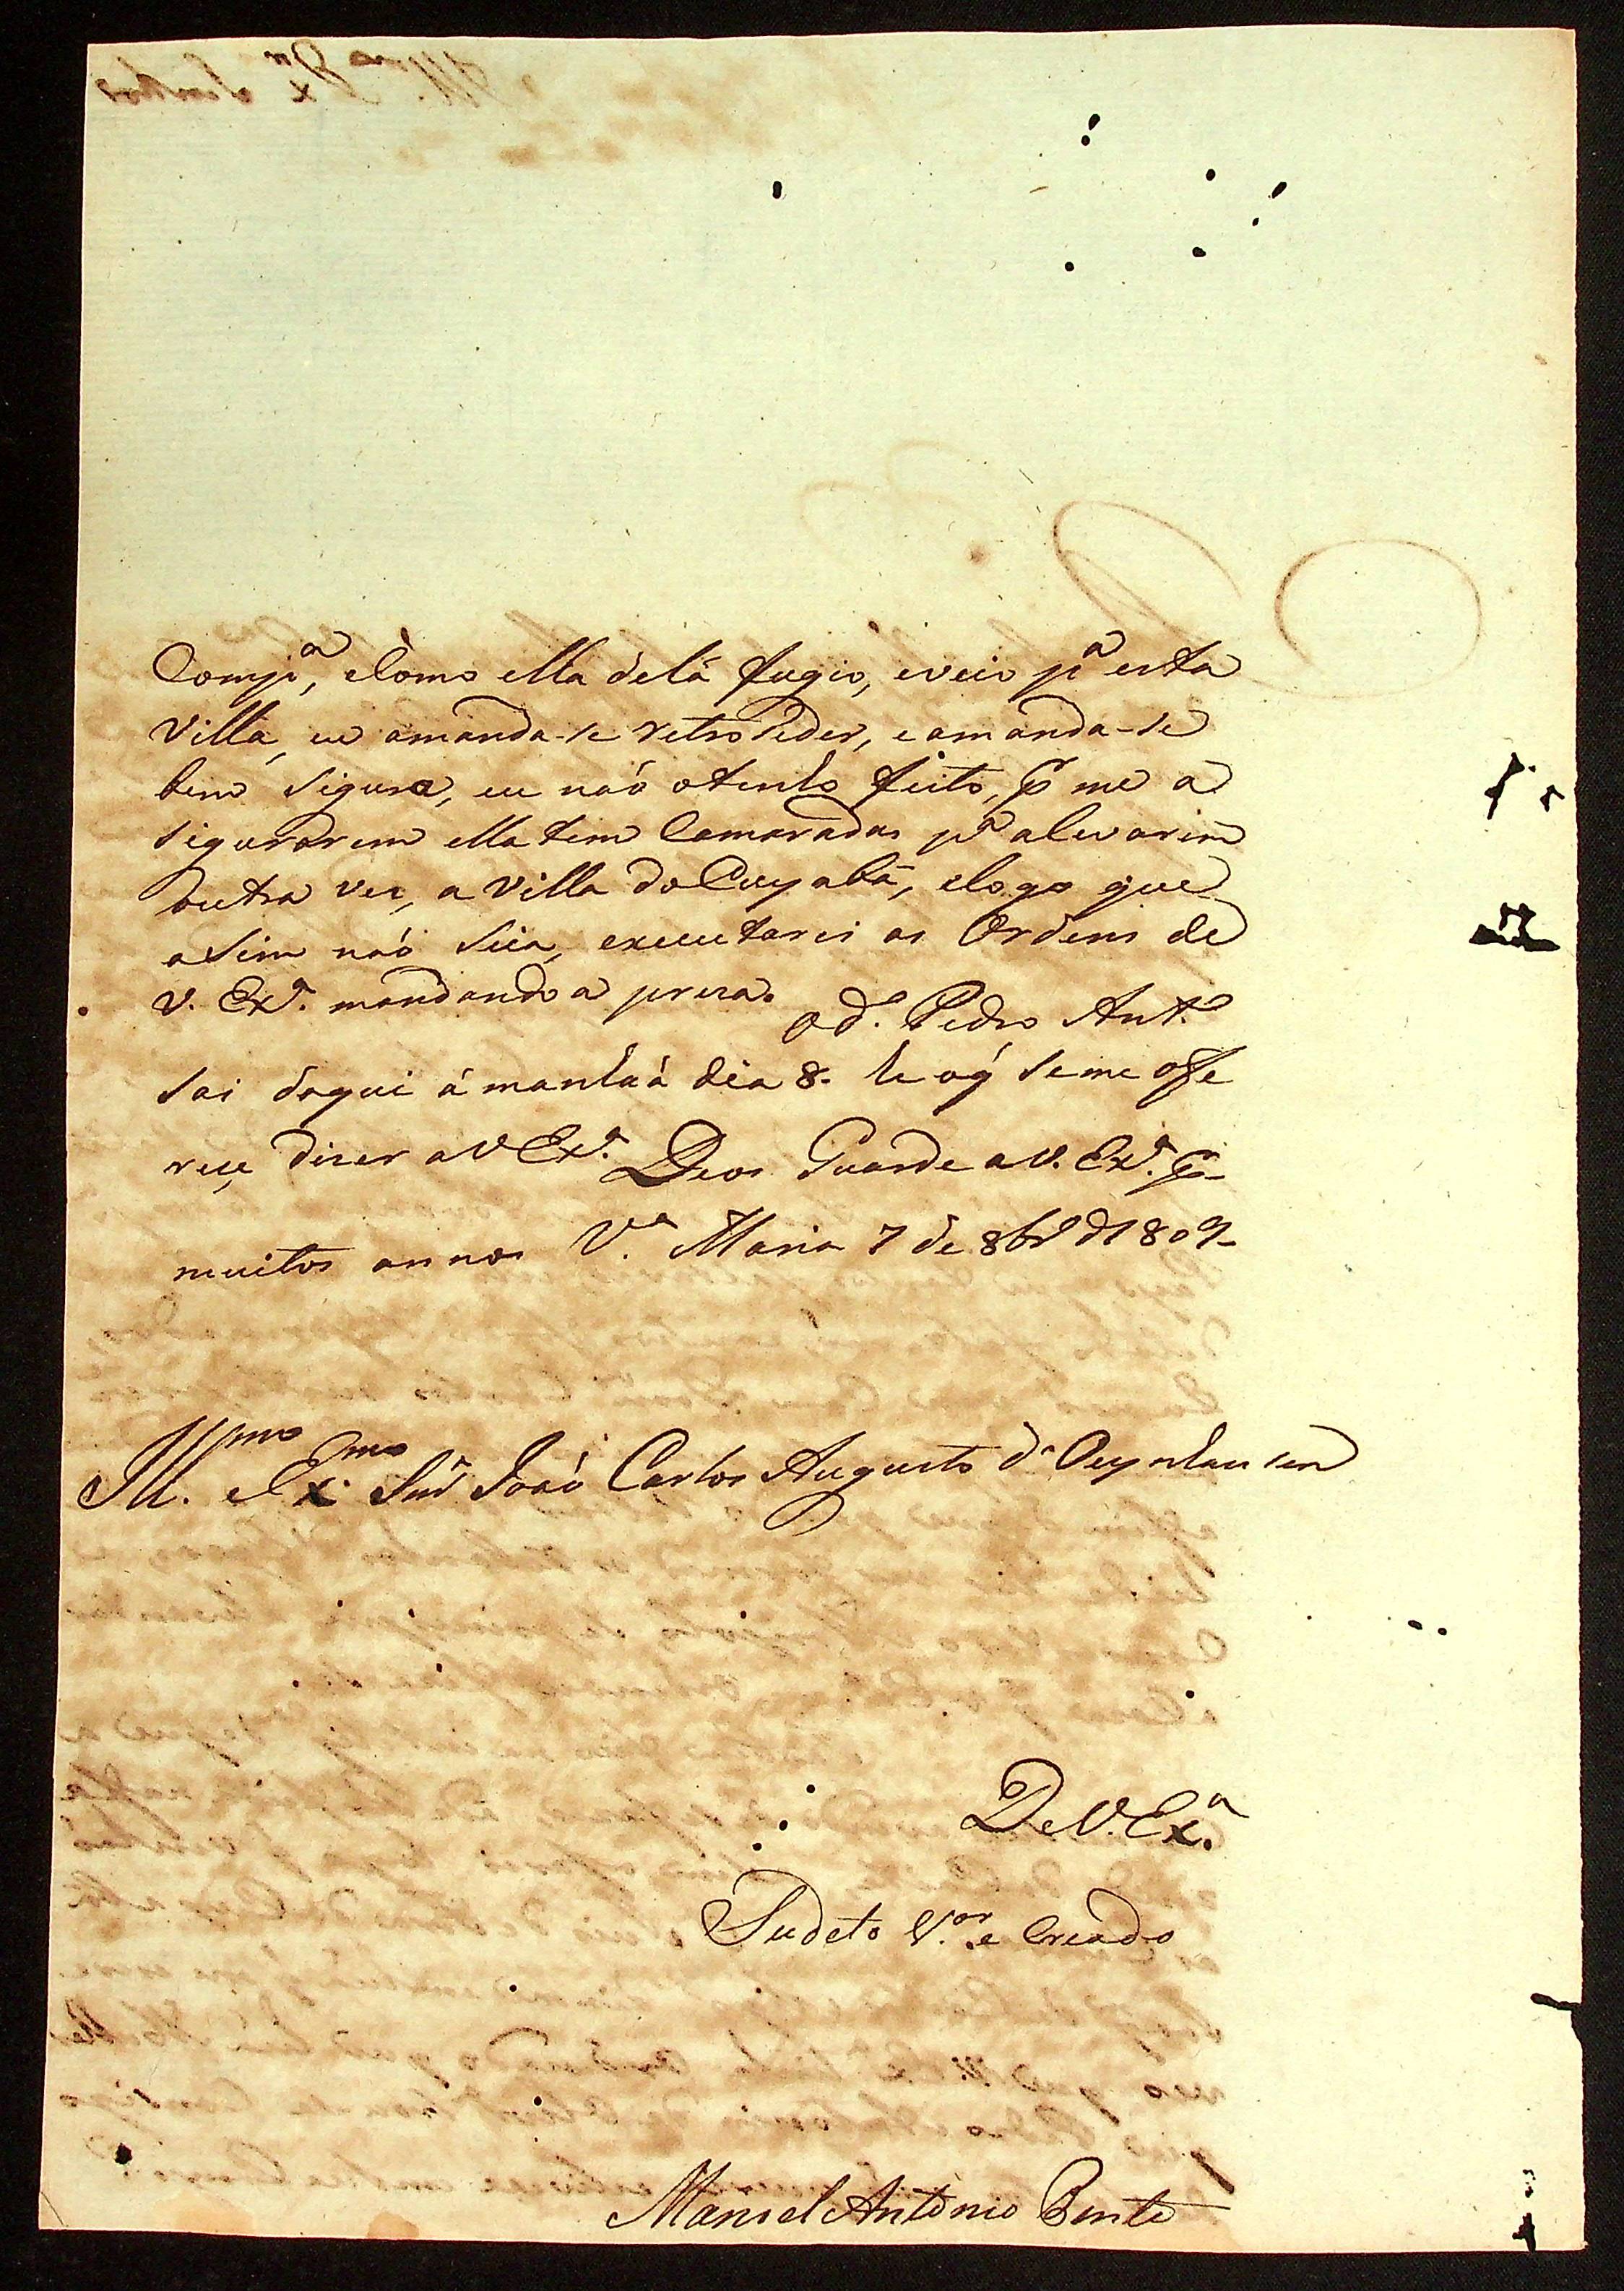 Comp.ª, e Como ella de lá fugio, e veio p.ª esta
Villa, eu amanda-se retroseder, e amanda-se
bem sigura, eu naó o tenho feito, p me a
sigurarem ella tem Camaradas p.ª a levarem
outra ves, a Villa do Cuyabá, e logo que
asim naó seia, executarei as Ordens de
V. Ex.ª mandando a preza. O d.º Pedro Ant.º
sai daqui á manhaá dia 8. he o q̃ se me offe
reçe diser a V Ex.ª Deos Guarde a V. Ex.ª p
muitos annos V.ª Maria 7 de 8br.º d 1809
Ill.mo e Ex.mo Snr̃ Joaó Carlos Augusto d' Oeynhausen
De V. Ex.ª
Sudeto V.or e Creado
Manoel Antonio Bento